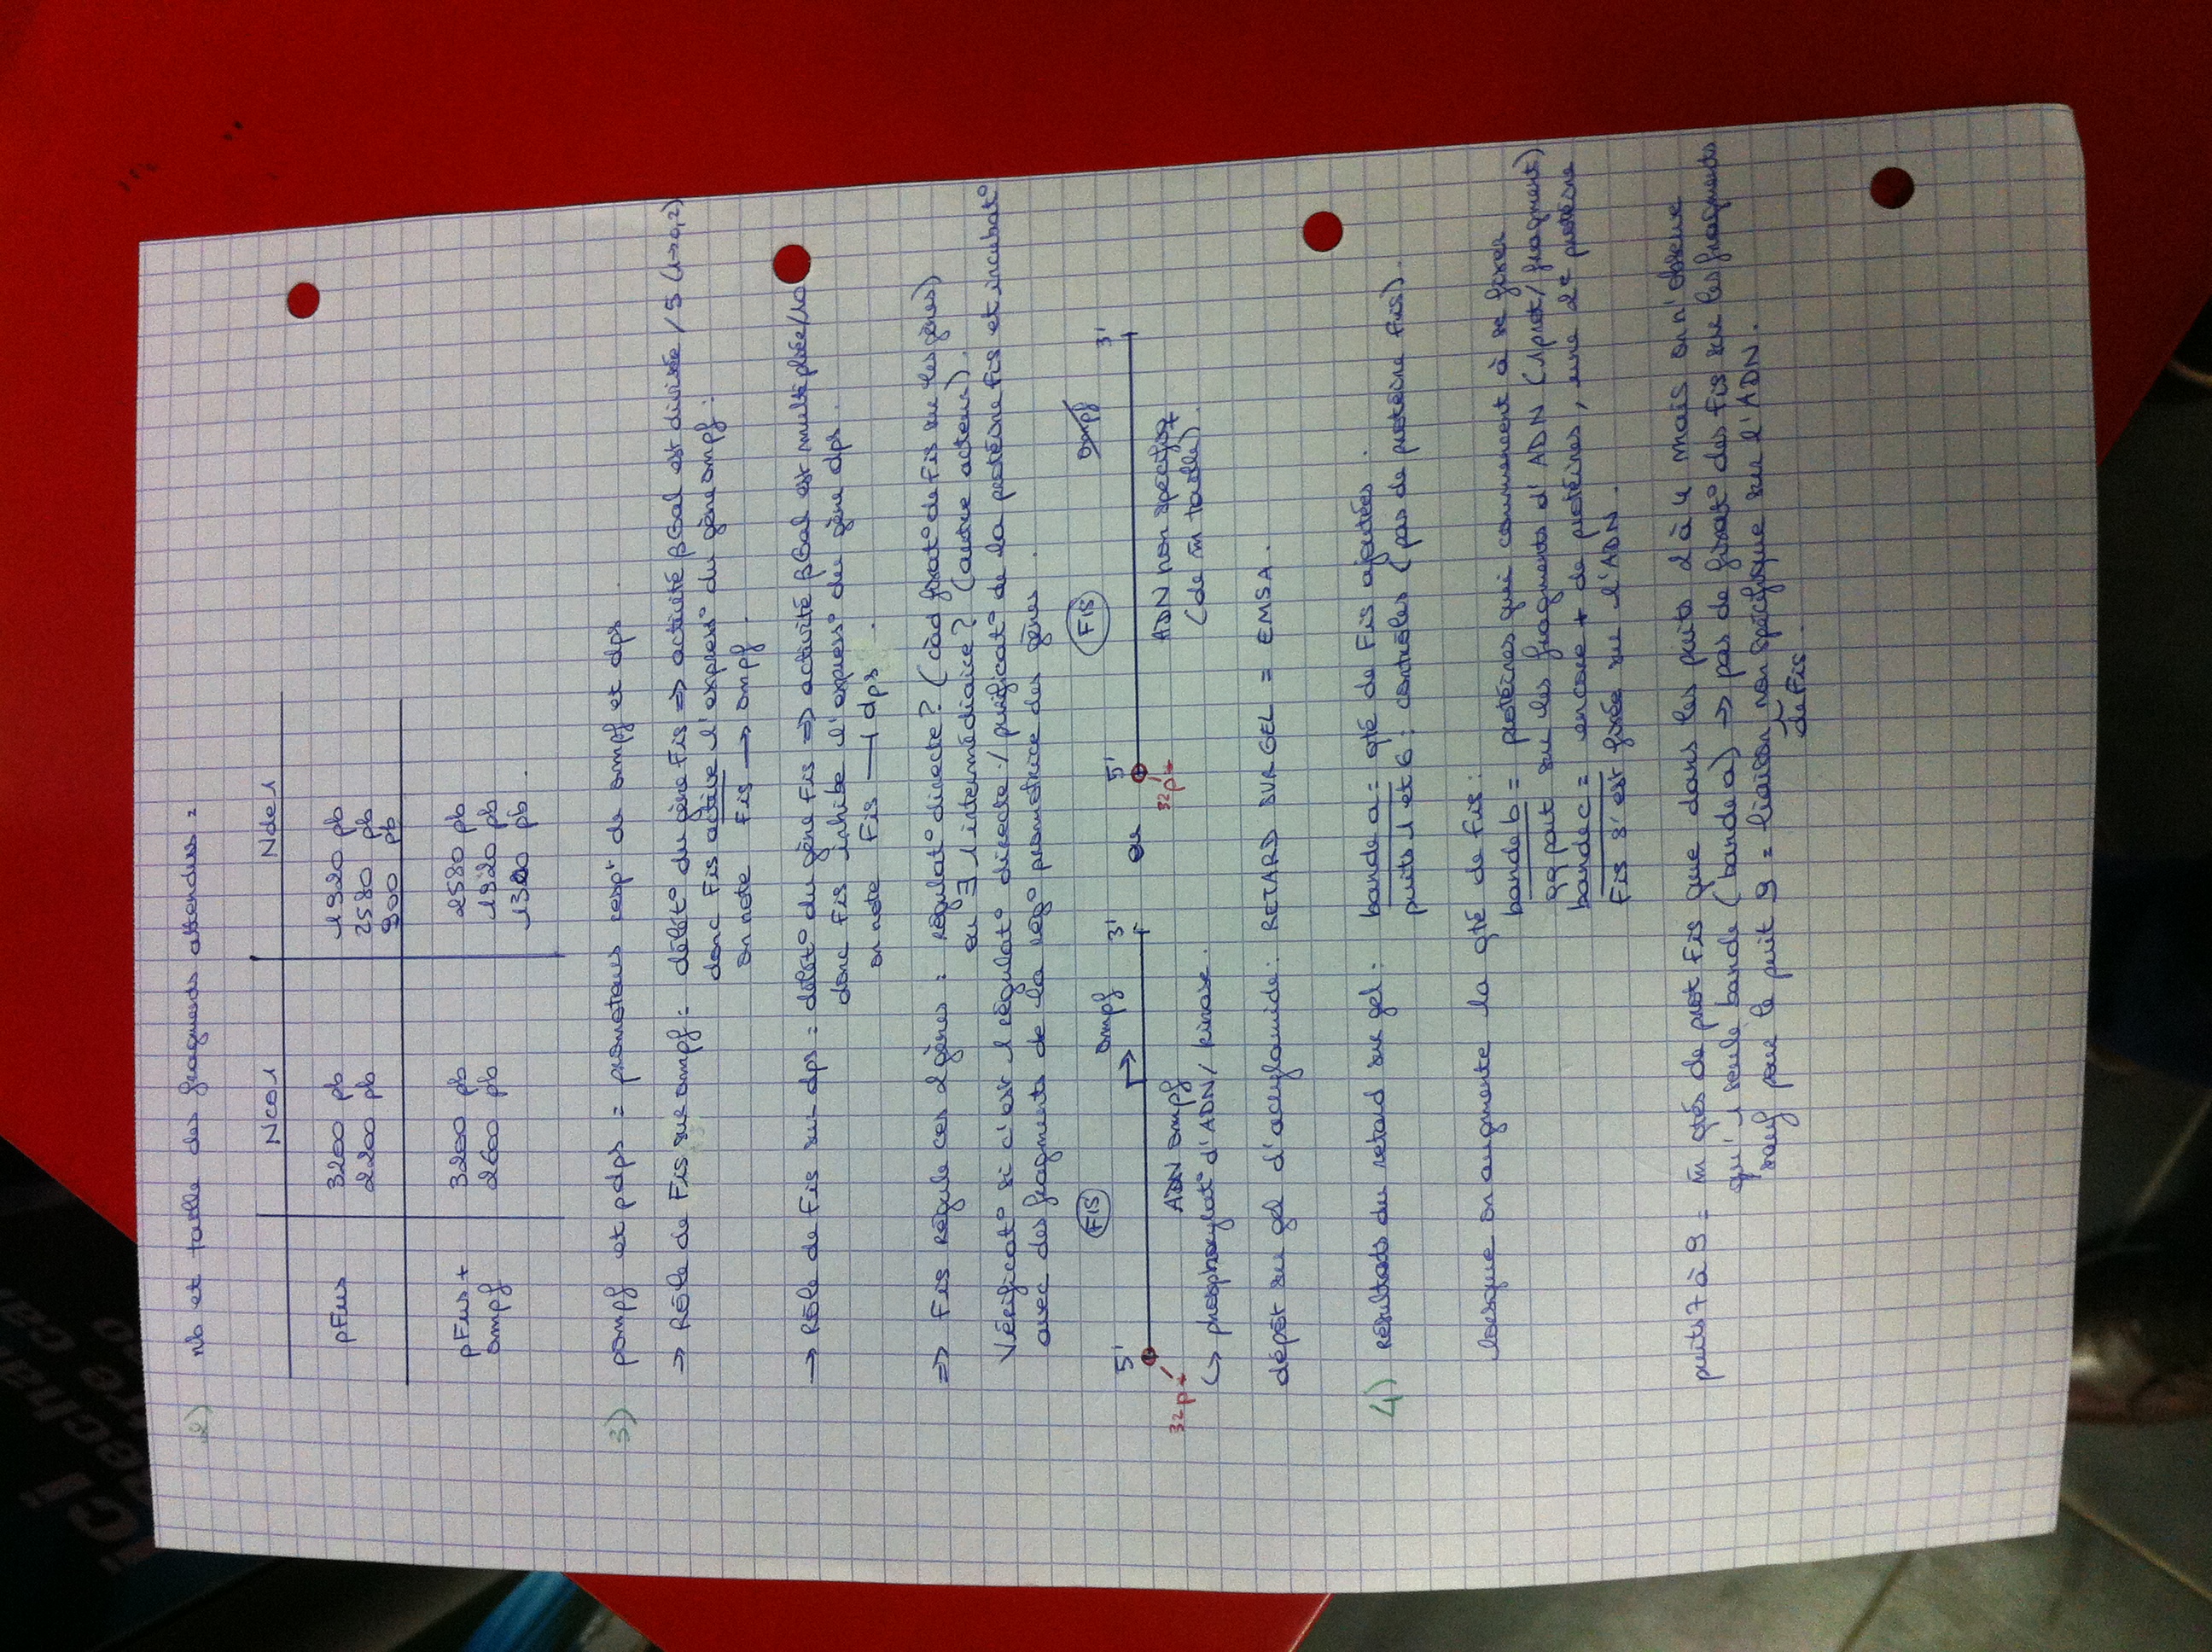 ici
echa
tre ca
2) nb et taille des fragments attendus :
Nco1 Nde1
pFus 3200 pb 1920 pb
2200 pb 2580 pb
900 pb
pFus + 3200 pb 2580 pb
ompf 2600 pb 1920 pb
1300 pb.
3) pompf et pdps = promoteurs respt de ompf et dps.
→ Rôle de Fis sur ompf : délét° du gène Fis ⇒ activité βGal est divisée /5 (1→0,2)
donc Fis active l'express° du gène ompf :
on note Fis → ompf.
→ Rôle de Fis sur dps : délét° du gène Fis ⇒ activité βGal est multipliée/10
donc Fis inhibe l'express° du gène dps.
on note Fis ⊣ dps.
⇒ Fis régule ces 2 gènes : régulat° directe? (càd fixat° de Fis sur les gènes)
ou ∃ 1 intermédiaire? (autre acteur).
Vérificat° si c'est 1 régulat° directe / purificat° de la protéine Fis et incubat°
avec des fragments de la rég° promotrice des gènes.
FIS FIS ompf
5' ompf 3' ou 5' 3'
32p 32p
ADN ompf ADN non spécifiq
↳ phosphorylat° d'ADN / kinase. (de m̄ taille).
dépôt sur gel d'acrylamide : RETARD SUR GEL = EMSA.
4) résultats du retard sur gel : bande a = qté de Fis ajoutées.
puits 1 et 6 : contrôles (pas de protéine Fis).
lorsque on augmente la qté de Fis :
bande b = protéines qui commencent à se fixer
qq part sur les fragments d'ADN (1prot/fragment)
bande c = encore + de protéines, une 2e protéine
Fis s'est fixée sur l'ADN.
puits 7 à 9 = m̄ qtés de prot Fis que dans les puits 2 à 4 mais on n'observe
qu'1 seule bande (bande a) → pas de fixat° des Fis sur les fragments
sauf pour le puit 9 = liaison non spécifique sur l'ADN.
de Fis.